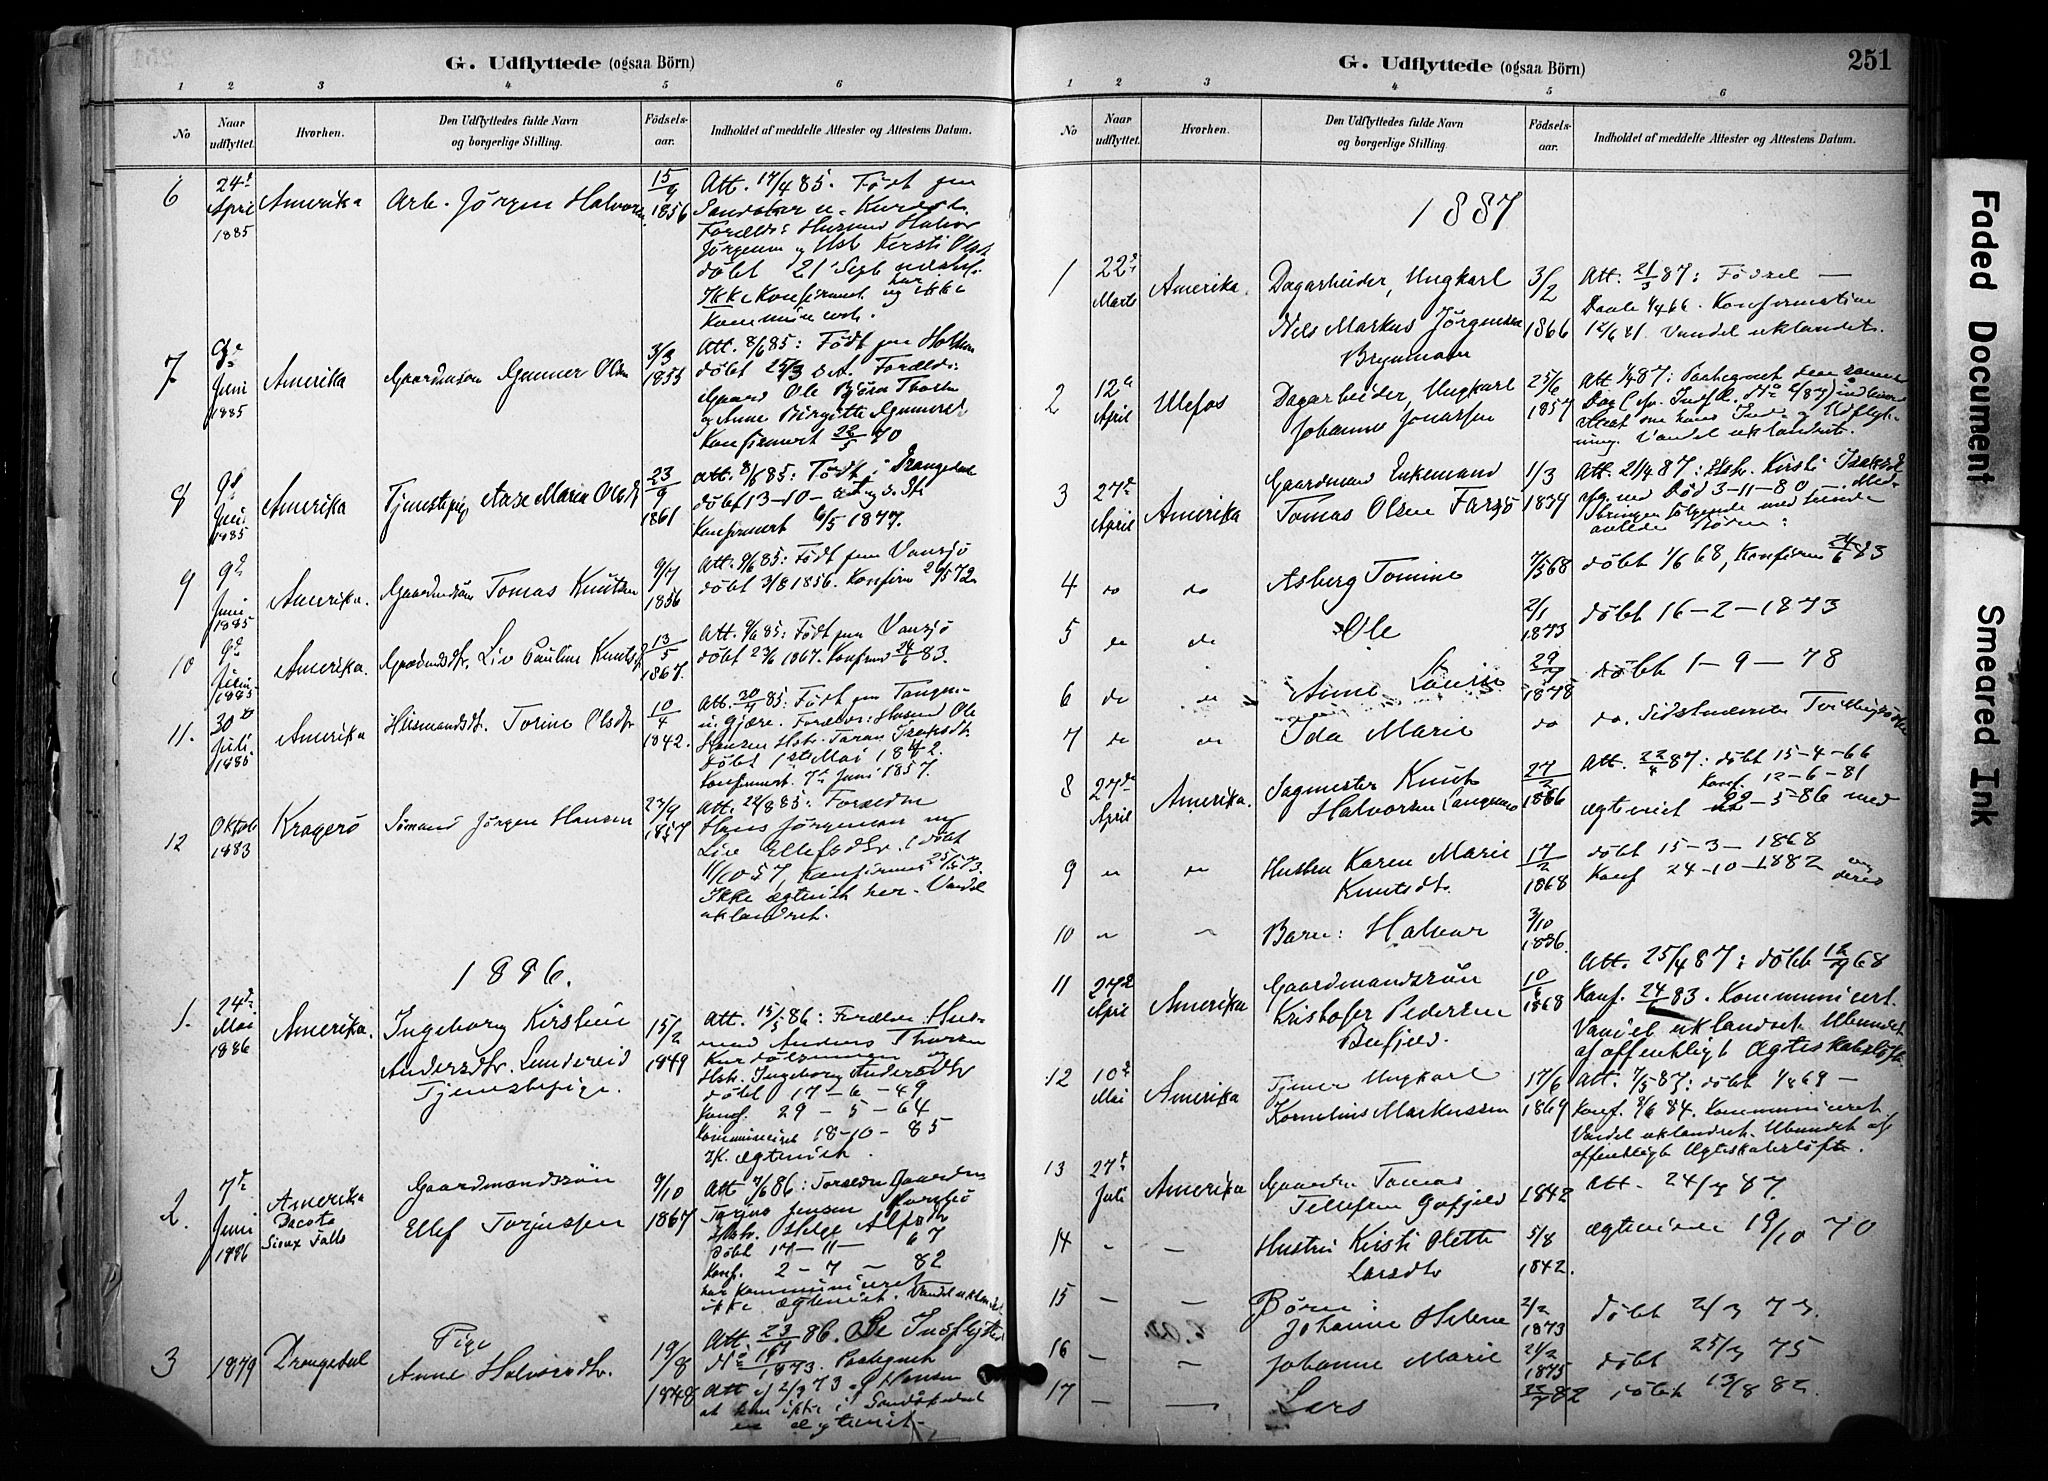 G. Udflyttede (ogsaa Börn)
1 2 3 4 5 6
No
Naar udflyttet.
Hvorhen.
Den Udflyttedes fulde Navn og borgerlige Stilling.
Födsels-aar.
Indholdet af meddelte Attester og Attestens Datum.
6 24d April 1885 Amerika Arb. Jörgen Halvorsen 15/9 1856
Att. 17/4 85. Födt paa
Forældre Husmand Halvor
Jörgensen og Hst. Kirsti Olsd.
döbt 21 Sept
Ikke Konfirmert og har ikke
7 Juni 1885 Amerika Gaardmandsön Gunner Olsen 3/3 1855
Att. 8/6 85: Födt paa
döbt 25/3 s.A. Forældre
Gaard Ole Björn
og Anne Birgitte Gunnersd.
Konfirmert 22/5 70
8 9d Juni 1885 Amerika Tjenestepige Aase Maria Olsdtr 23/9 1861
Att. 8/6 85: Födt i Drangedal
döbt 13-10-
Konfirmert 6/5 1877.
9 9d Juni 1885 Amerika. Gaardmdsön Tomas Knutsen 9/7 1856
Att. 9/6 85: Födt paa Vansjö
döbt 3/8 1856. Konfirm 26/5 72
10 9d Juni 1885 Amerika. Gaardmdsdtr. Liv Pauline Knutsd 13/5 1867.
Att. 9/6 85: Födt paa Vansjö
döbt 23/6 1867. Konfirm 24/6 83.
11. 30d Juli 1885 Amerika Husmandsdtr. Torine Olsdtr 10/4 1842.
Att. 30/7 85: Födt paa Tangen
Forældre: Husmd Ole
Hansen Hst. Taran Isaksdtr.
Döbt 1ste Mai 1842.
Konfirmert 7de Juni 1857.
12 Oktob 1883 Kragerö Sömand Jörgen Hansen 23/9 1857
Att. 22/8 85: Forældre
Hans Jörgensen og
Liv Ellefsdtr. döbt
11/10 57, Konfirmert 25/5 73.
Ikke ægteviet her. Vandel
uklandret.
1886.
1. 24de Mai 1886 Amerika. Ingeborg Kirstine
Andersdtr. Lundereid
Tjenestepige.
15/2 1849
Att. 15/5 86: Forældre Hus-
mand Anders Thorsen
Hst. Ingeborg Andersdtr
döbt 17-6-49
Konf. 29-5-64
Kommuniceret 18-10-85
Ik. ægteviet.
2. 7de Juni 1886 Amerika
Dacota
Sioux Falls
Gaardmandssön
Ellef Torjussen
9/10 1867
Att 7/6 86: Forældre Gaardm
Torjus Jensen
Hst. Helge Alfsdtr
Döbt 17-11-67
Konf. 2-7-82
har kommuniceret
ikke ægteviet. Vandel uklandret
3 1879 Drangedal
Pige
Anne Halvorsdtr.
19/8 1848
Att 23/7 86. Se Indflyttede
No 167 1873. Paategnet
Att af 2/9 73 af Hansen
at hun ikke i Sandökedal
er ægteviet.
G. Udflyttede (ogsaa Börn)
251
1 2 3 4 5 6
No
Naar udflyttet.
Hvorhen.
Den Udflyttedes fulde Navn og borgerlige Stilling.
Födsels-aar.
Indholdet af meddelte Attester og Attestens Datum.
1887
1 22d Marts Amerika. Dagarbeider, Ungkarl
Nils Markus Jörgensen
3/2 1866
Att. 21/3 87: Födsel —
Daab 1/4 66. Konfirmation
12/6 81. Vandel uklandret.
2 12te April Ulefos Dagarbeider, Ungkarl
Johannes Jonassen
25/6 1857
Att. 1/4 87: Paategnet den samme
Vandel uklandret.
3 27de April Amerika
Gaardmand Enkemand
Tomas Olsen Farsjö
1/3 1837
Att. 21/4 87: Hstr. Kirsti Isaksdtr.
Död 3-11-80. Med-
bringer fölgende med hende
avlede Börn:
4 do do Asberg Tomine 7/5 68 döbt 1/6 68, Konfirm 24/6 83
5 do do Ole 2/1 1873 döbt 16-2-1873
6 do do Anne Lovise 29/7 1878 döbt 1-9-78
7 do do Ida Marie do do. Sidstnævnte Tvillingsöstre
8 27de April Amerika. Sagmester Knut
Halvorsen
27/2 1866
Att. 22/4 87: döbt 15-4-66
Konf. 12-6-81
ægteviet 22-5-86 med
9 do do Hustru Karen Marie
Knutsdtr.
17/2 1868
döbt 15-3-1868
Konf 24-10-1882 og
deres
10 — — Barn: Halvor 3/10 1886.
11 27de April Amerika Gaardmandssön
Kristofer Pedersen
10/6 1868
Att. 25/4 87: döbt 12/7 68
Konf. 24/6 83. Kommunicert.
Vandel uklandret. Ubundet
af offentligt Ægteskabslöfte.
12 10de Mai Amerika Tjener Ungkarl
Kornelius Markussen
17/6 1869
Att. 7/5 87: döbt 1/8 69 —
Konf. 8/6 84. Kommuniceret.
Vandel uklandret. Ubundet af
offentligt Ægteskabslöfte.
13 27de Juli Amerika Gaardm Tomas
Tellefsen Gofjeld
1842
Att. 24/7 87.
14 — — Hustru Kirsti Olette
Larsdtr
5/8 1842.
ægteviede 19/10 70
15 — — Börn:
Johanne Helene
2/2 1873
döbt 2/3 73.
16 — — Johanne Marie 21/2 1875 döbt 25/3 75
17 — — Lars 22/7 82 döbt 13/8 82
Faded Document
Smeared Ink